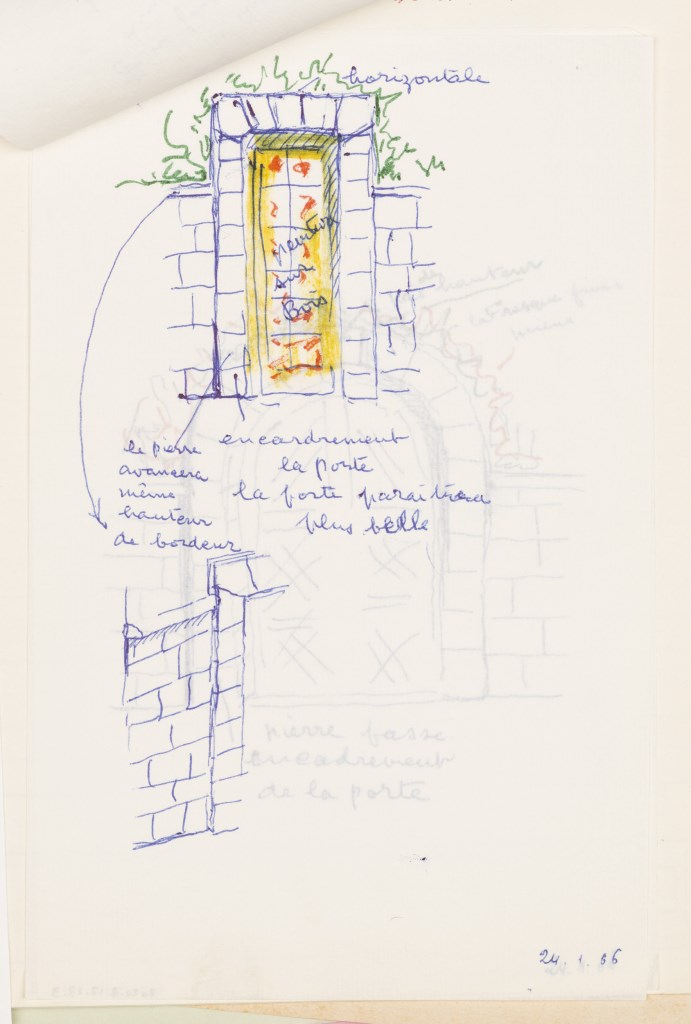 horizontale
peinture
sur
Bois
la pierre
avancera
même
hauteur
de bordeur
encardrement
la porte
la porte paraitera
plus belle
hauteur
pierre basse
encadrement
de la porte
24. 1. 66